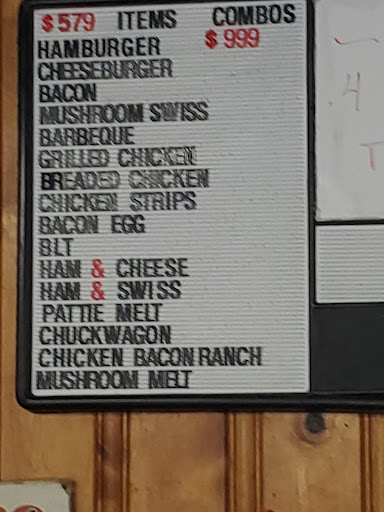 $579 ITEMS COMBOS
HAMBURGER $999
CHEESEBURGER
BACON
MUSHROOM SWISS
BARBEQUE
GRILLED CHICKEN
BREADED CHICKEN
CHICKEN STRIPS
BACON EGG
BLT
HAM & CHEESE
HAM & SWISS
PATTIE MELT
CHUCKWAGON
CHICKEN BACON RANCH
MUSHROOM MELT
4
T